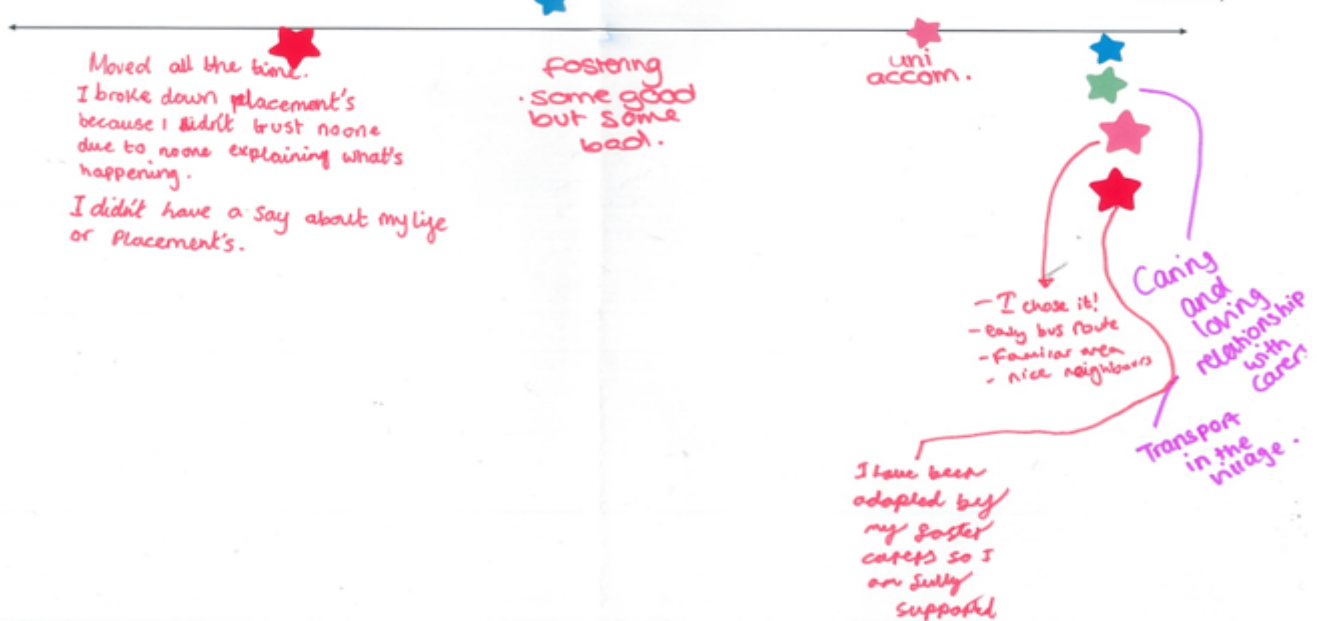 Moved all the time.
I broke down placement's
because I didn't trust noone
due to noone explaining what's
happening.
I didn't have a say about my life
or Placement's.
fostering
. some good
but some
bad.
uni
accom.
- I chose it!
- easy bus route
- Familiar area
- nice neighbours
Caring
and
loving
relationship
with
carers
Transport
in the
village.
I have been
adopted by
my foster
carers so I
am fully
supported